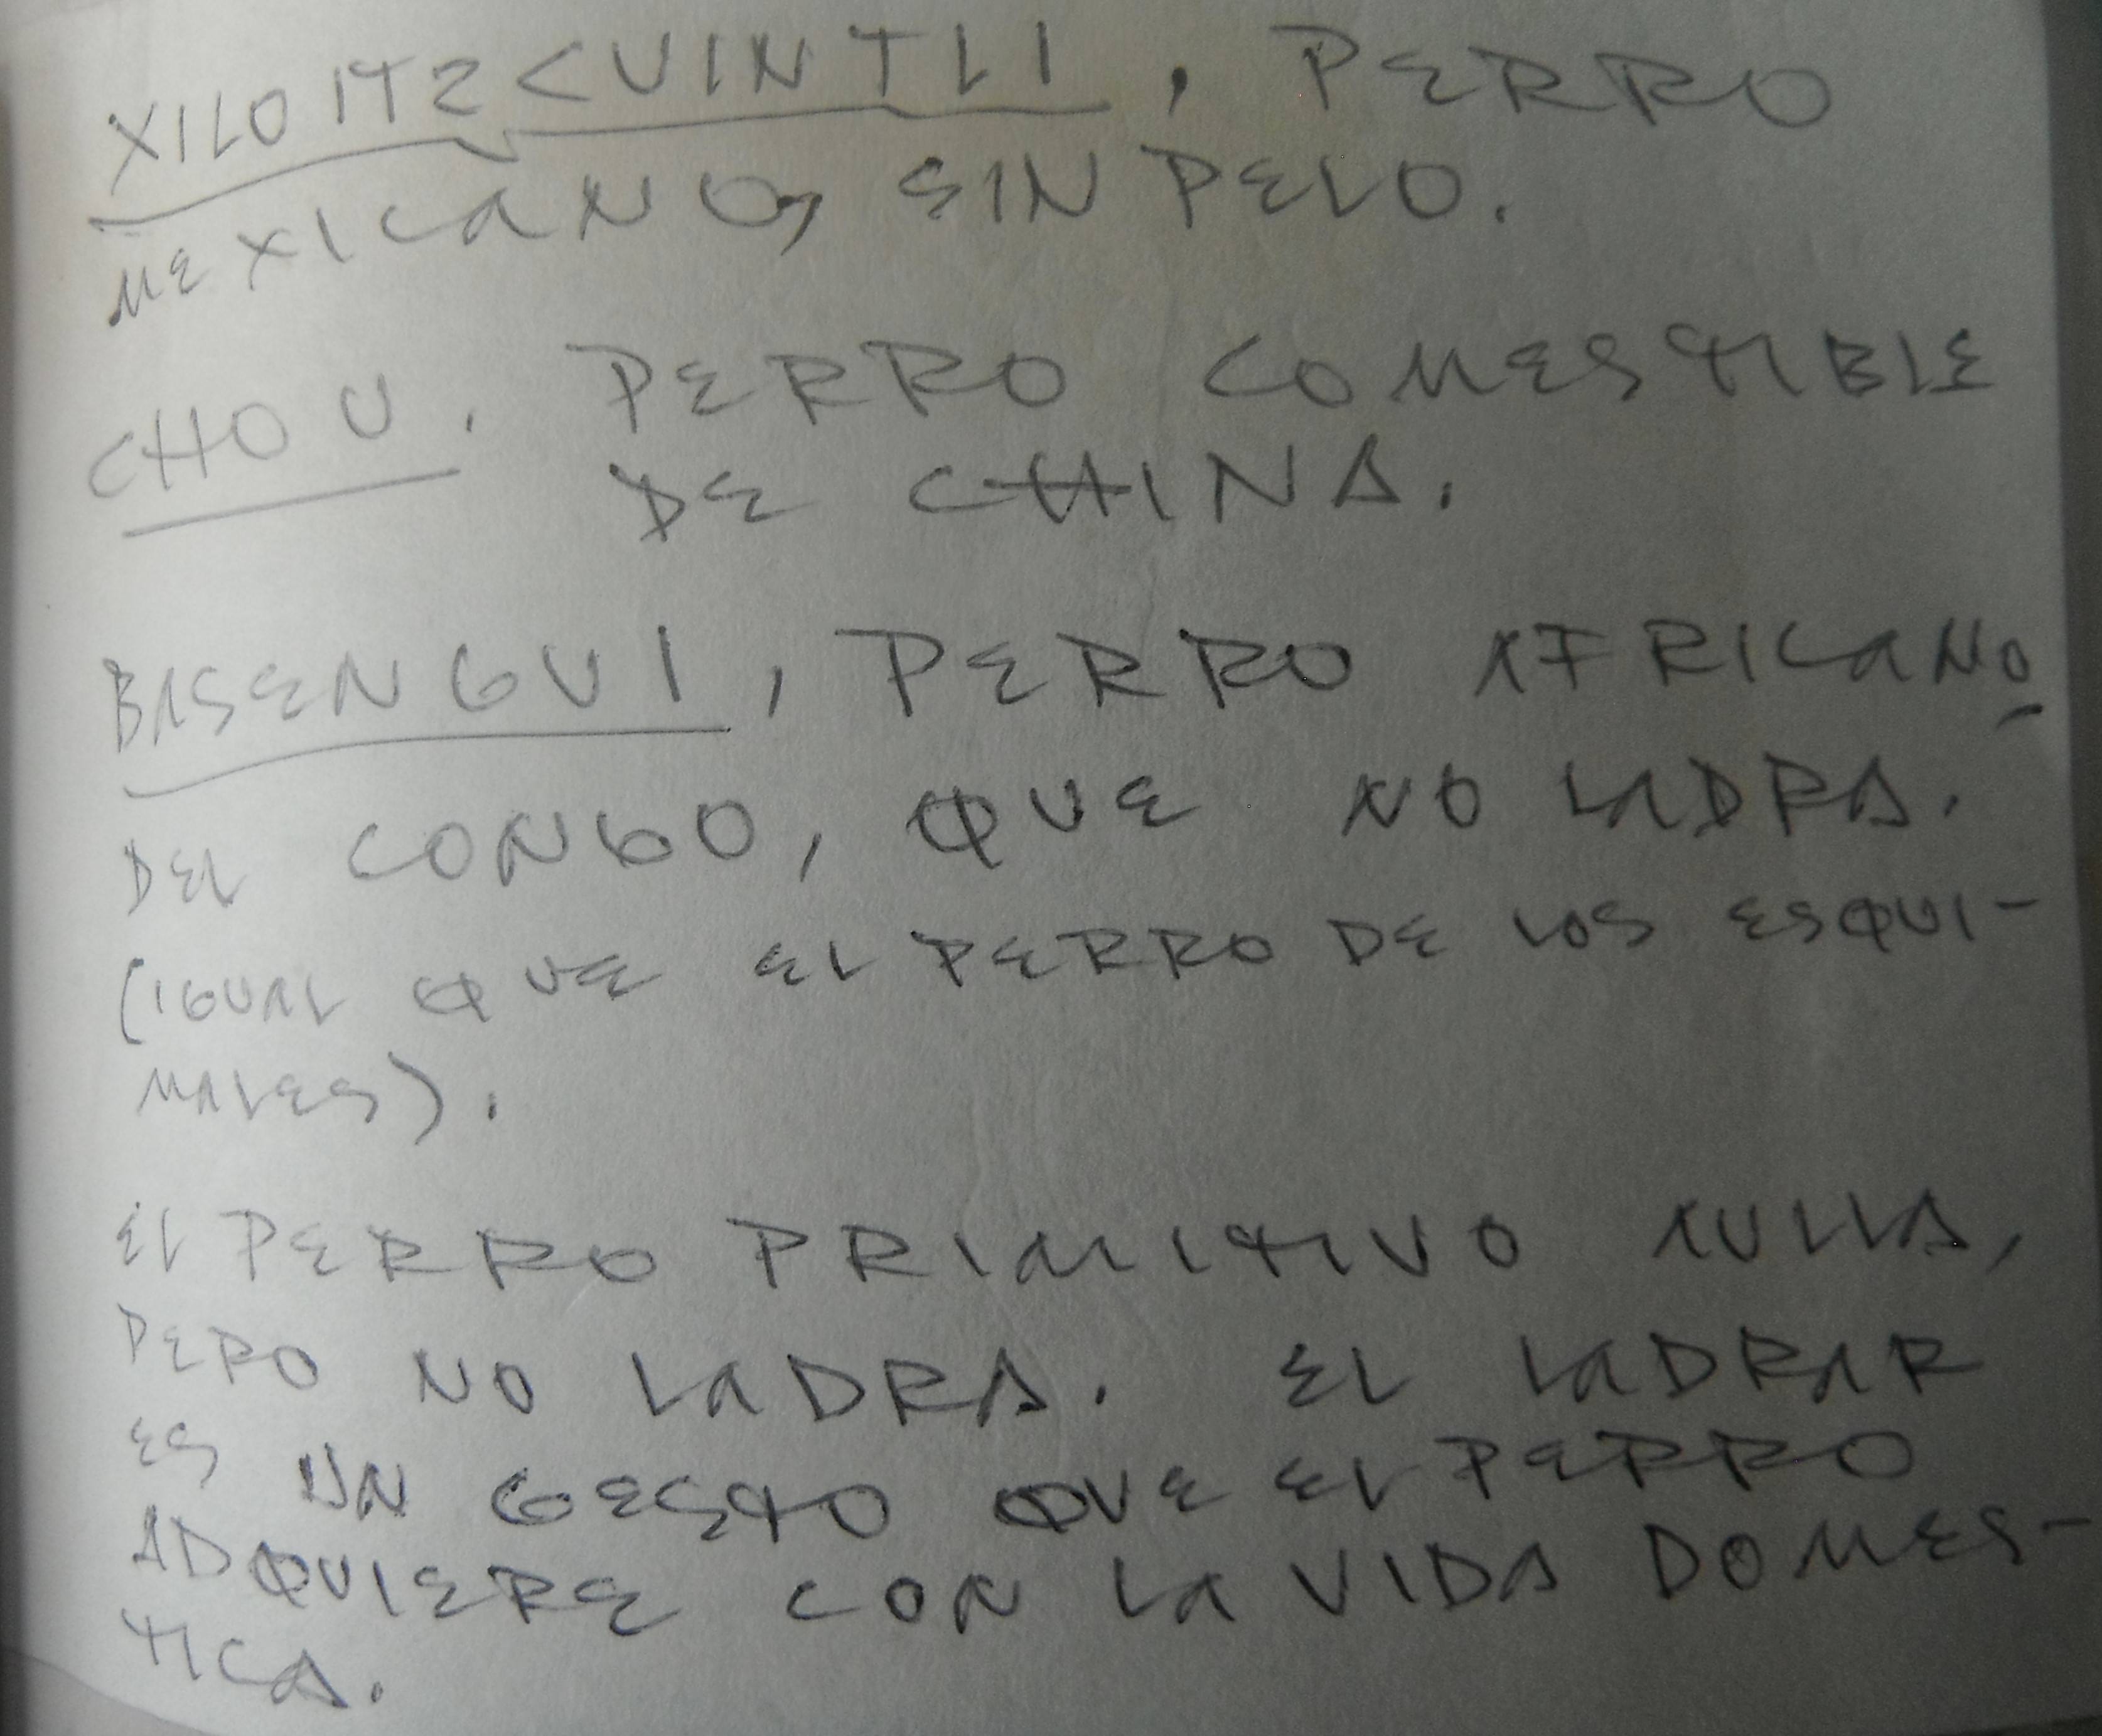 XILOITZCUINTLI, PERRO
MEXICANO, SIN PELO.
CHOU. PERRO COMESTIBLE
DE CHINA.
BASENGUI, PERRO AFRICANO
DEL CONGO, QUE NO LADRA.
(IGUAL QUE EL PERRO DE LOS ESQUI-
MALES).
EL PERRO PRIMITIVO AULLA,
PERO NO LADRA. EL LADRAR
ES UN GESTO QUE EL PERRO
ADQUIERE CON LA VIDA DOMES-
TICA.